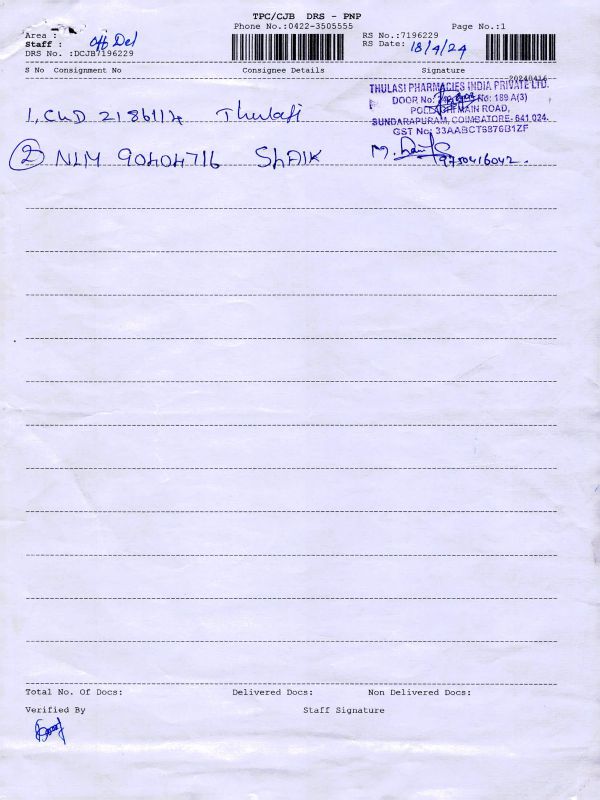 TPC/CJB DRS - PNP
Phone No.:0422-3505555 Page No.:1
Area :
Staff : off Del
RS No.:7196229
RS Date: 18/4/24
DRS No. :DCJB7196229
S No Consignment No Consignee Details Signature
20240416
THULASI PHARMACIES INDIA PRIVATE LTD.
DOOR No: No: 189 A(3)
POLLACHI MAIN ROAD,
SUNDARAPURAM, COIMBATORE- 641 024.
GST No: 33AABCT6876B1ZF
1, CHD 2186114 Thulasi
2 NLM 90404716 SHAIK
M. 9750416042.
Total No. Of Docs: Delivered Docs: Non Delivered Docs:
Verified By Staff Signature